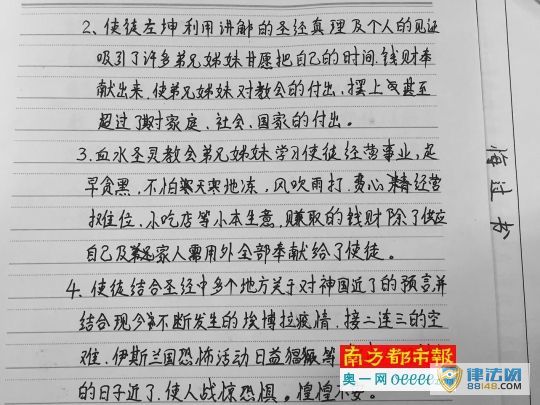 2、使徒左坤利用讲解的圣经真理及个人的见证
吸引了许多弟兄姊妹甘愿把自己的时间.钱财奉
献出来.使弟兄姊妹对教会的付出.摆上甚至
超过了对家庭、社会、国家的付出。
3.血水圣灵教会弟兄姊妹学习使徒经营事业,起
早贪黑,不怕寒天寒地冻,风吹雨打.费心精经营
投住位、小吃店等小本生意,赚取的钱财除了供应
自己及家人需用外全部奉献给了使徒。
4、使徒结合圣经中多个地方关于对神国近了的预言,并
结合现今不断发生的埃博拉疫情,接二连三的空
难.伊斯兰国恐怖活动日益猖獗等
的日子近了.使人战惊恐惧。惶惶不安。
悔过书
南方都市報
奥一网 oeeee.
律法网
88148.com